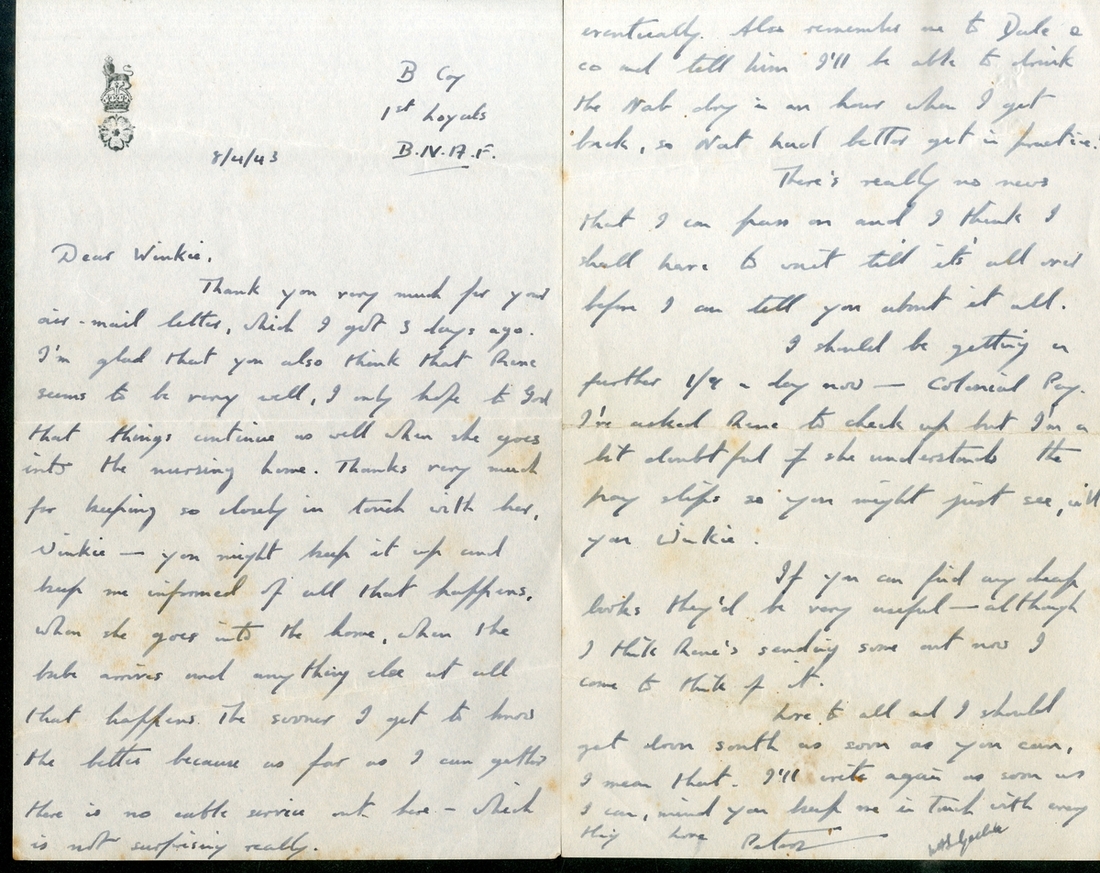 B Coy
1st Loyals
8/4/43
B.N.A.F.
Dear Winkie,
Thank you very much for your
air-mail letter, which I got 3 days ago.
I'm glad that you also think that Rene
seems to be very well, I only hope to God
that things continue as well when she goes
into the nursing home. Thanks very much
for keeping so closely in touch with her,
Winkie — you might keep it up and
keep me informed of all that happens,
when she goes into the home, when the
babe arrives and anything else at all
that happens. The sooner I get to know
the better because as far as I can gather
there is no cable service out here - which
is not surprising really.
eventually. Also remember me to Dale &
co and tell him I'll be able to drink
the Nab dry in an hour when I get
back, so Nat had better get in practice!
There's really no news
that I can pass on and I think I
shall have to wait till it's all over
before I can tell you about it all.
I should be getting a
further 1/9 a day now — Colonial Pay.
I've asked Rene to check up but I'm a
bit doubtful if she understands the
pay slips so you might just see, will
you Winkie.
If you can find any cheap
books they'd be very useful — although
I think Rene's sending some out now I
come to think of it.
Love to all and I should
get down south as soon as you can,
I mean that. I'll write again as soon as
I can, mind you keep me in touch with every
thing love Peter